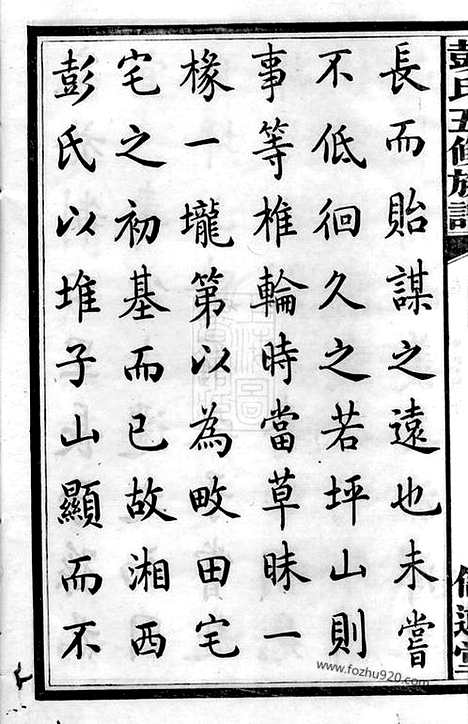 彭氏五修族譜
長而貽謀之遠也未嘗
不低徊久之若坪山則
事等椎輪時當草昧一
椽一壠第以為畋田宅
宅之初基而已故湘西
彭氏以堆子山顯而不
www.fozhu920.com